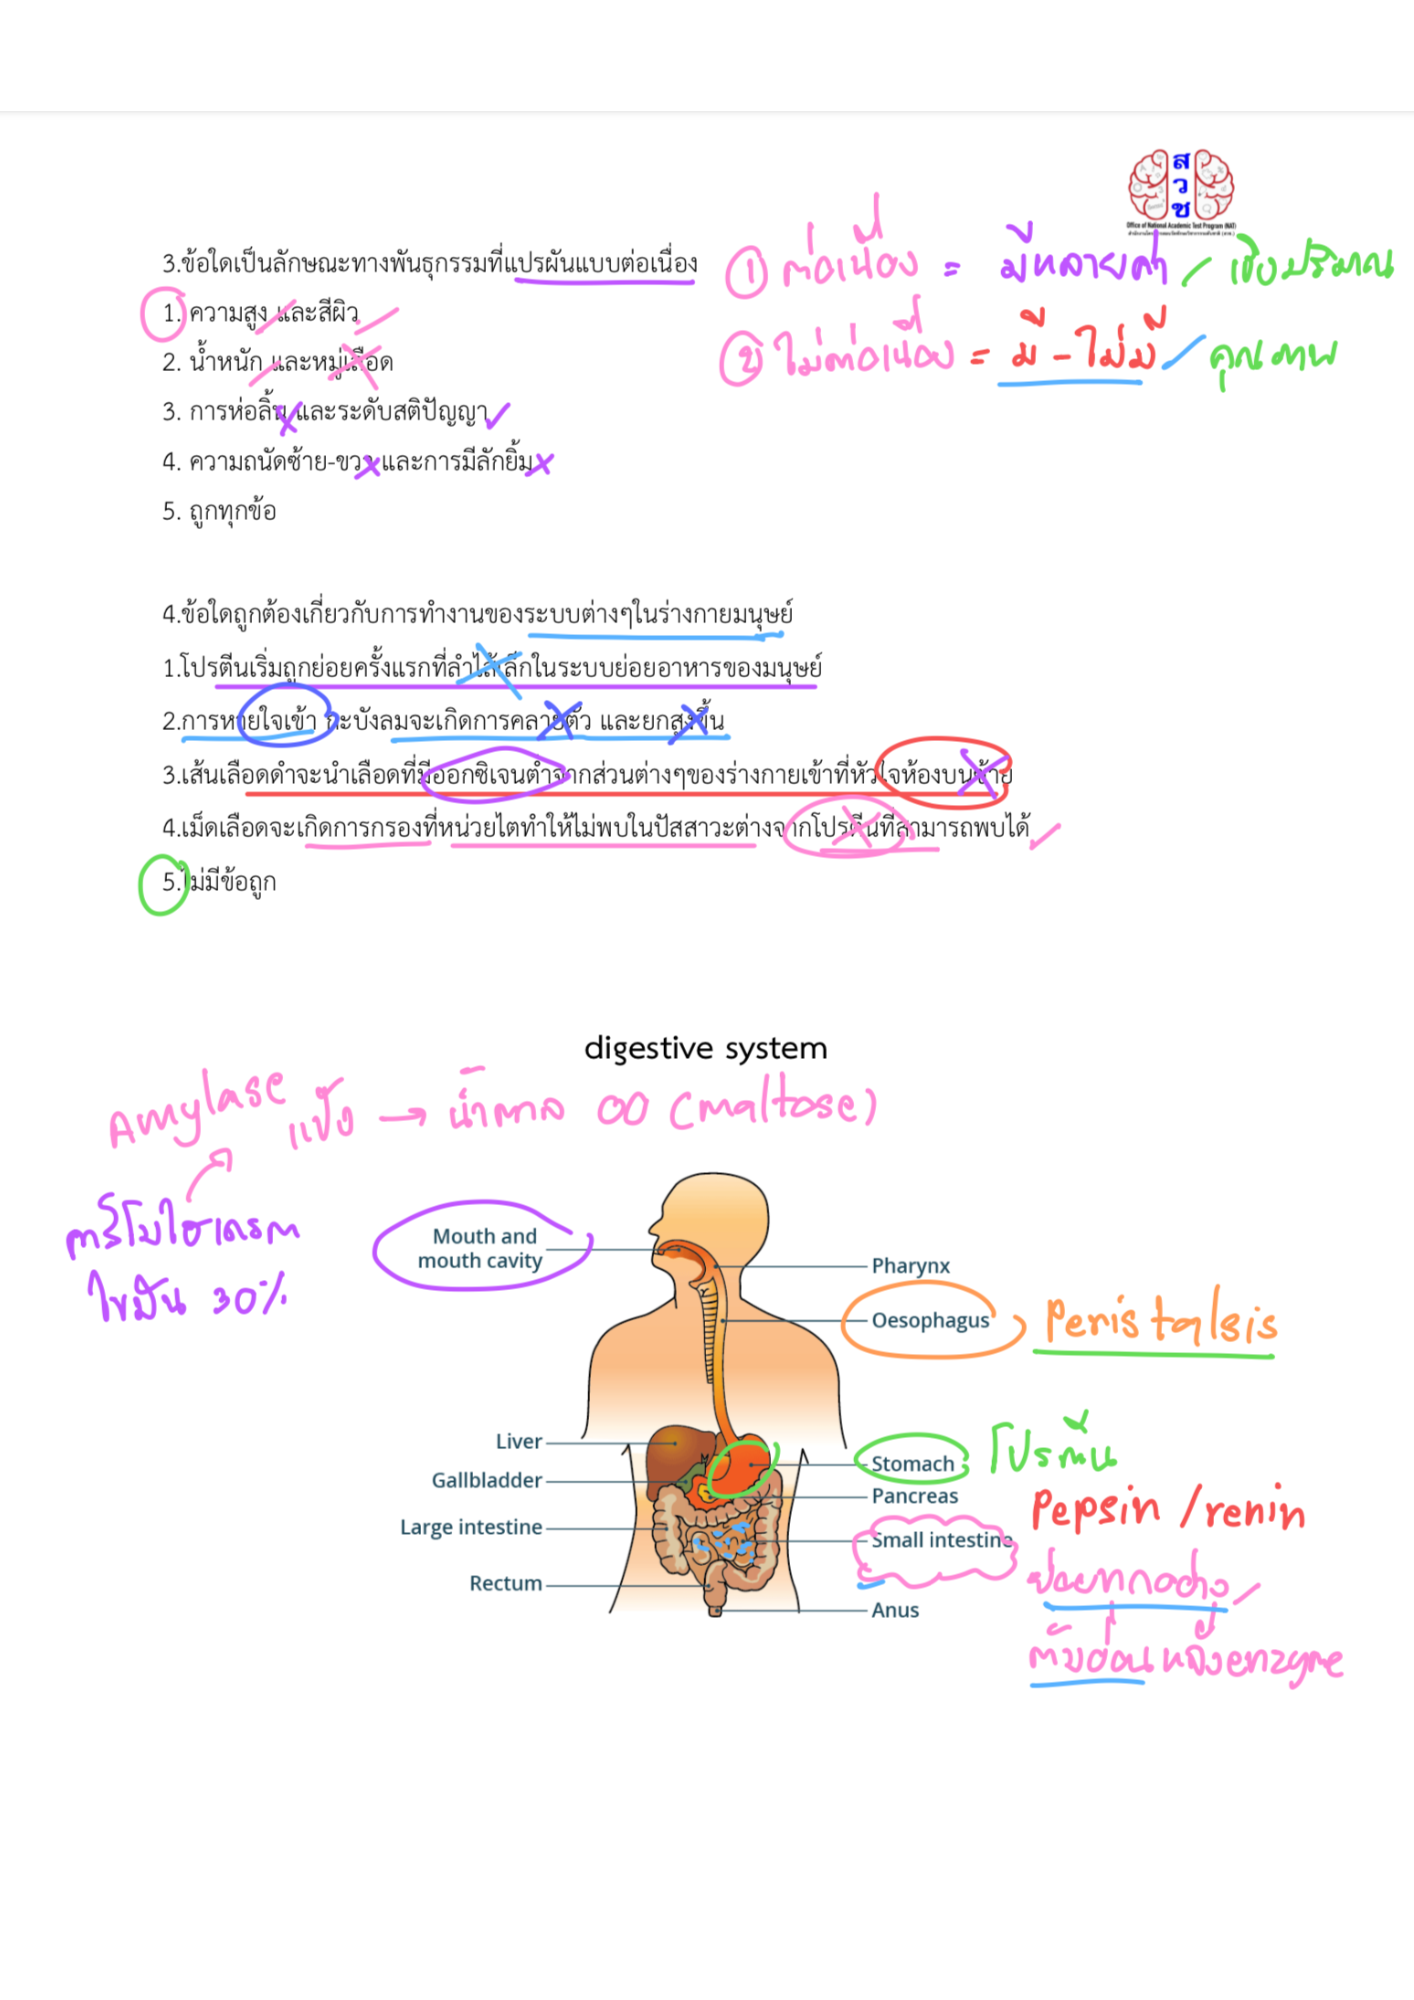 ส
ว
ช
Office of National Academic Test Program (NAT)
3.ข้อใดเป็นลักษณะทางพันธุกรรมที่แปรผันแบบต่อเนื่อง
① ต่อเนื่อง = มีหลายค่า / เชิงปริมาณ
1. ความสูง และสีผิว
② ไม่ต่อเนื่อง = มี - ไม่มี / คุณภาพ
2. น้ำหนัก และหมู่เลือด
3. การห่อลิ้น และระดับสติปัญญา
4. ความถนัดซ้าย-ขวา และการมีลักยิ้ม
5. ถูกทุกข้อ
4.ข้อใดถูกต้องเกี่ยวกับการทำงานของระบบต่างๆในร่างกายมนุษย์
1.โปรตีนเริ่มถูกย่อยครั้งแรกที่ลำไส้เล็กในระบบย่อยอาหารของมนุษย์
2.การหายใจเข้า กะบังลมจะเกิดการคลายตัว และยกสูงขึ้น
3.เส้นเลือดดำจะนำเลือดที่มีออกซิเจนต่ำจากส่วนต่างๆของร่างกายเข้าที่หัวใจห้องบนซ้าย
4.เม็ดเลือดจะเกิดการกรองที่หน่วยไตทำให้ไม่พบในปัสสาวะต่างจากโปรตีนที่สามารถพบได้
5.ไม่มีข้อถูก
digestive system
Amylase แป้ง → น้ำตาล (maltose)
คาร์โบไฮเดรต
ไขมัน 30%
Mouth and
mouth cavity
Pharynx
Oesophagus
Peristalsis
Liver
Stomach
โปรตีน
Gallbladder
Pancreas
Pepsin / renin
Large intestine
Small intestine
ย่อยทุกอย่าง
Rectum
Anus
ตับอ่อนหลั่งenzyme